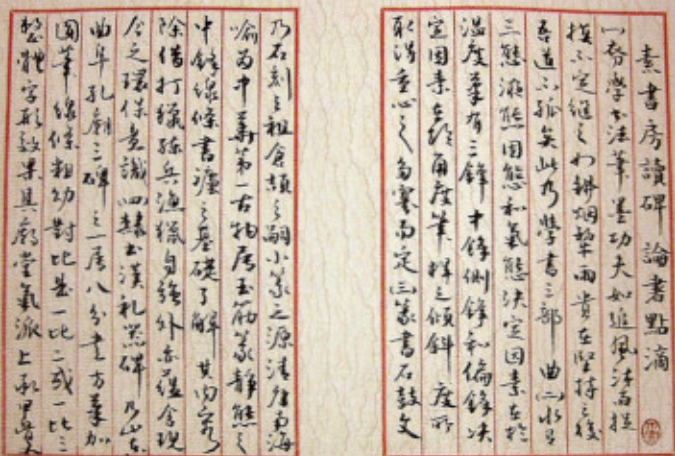 素書房讀碑論書點滴
一 努學書法筆墨功夫如追風沐雨捉
摸不定繼之如耕烟犁雨貴在堅持之後
吾道不孤矣此乃學書三部曲 二 水有
三態液態固態和氣態決定因素在於
溫度筆有三鋒中鋒側鋒和偏鋒決
定因素在於角度筆桿之傾斜度所
取得重心之多寡而定 三 篆書石鼓文
乃石刻之祖倉頡之嗣小篆之源清康南海
喻為中華第一古物屬玉筋篆靜態之
中鋒線條書壇之基礎了解其內容
除借打獵練兵漁獵自強外亦蘊含現
今之環保意識 四 隸書漢禮器碑乃山東
曲阜孔廟三碑之一屬八分書方筆加
圓筆線條粗幼對比是一比二或一比三
整體字形效果具廟堂氣派上承